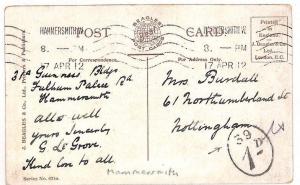 HAMMERSMITH
HAMMERSMITH W.
POST CARD
BEAGLES
8. PM
17 APR 12
8. PM
17 APR 12
For Correspondence.
For Address Only.
Printed
in
England.
J. Beagles & Co.
Ltd.,
London, E.C.
J. BEAGLES & Co., Ltd., Printers & Publishers.
3 Guinness Bldgs
Fulham Palace Rd
Hammersmith
All well
yours Sincerely
G. Le Grove.
Kind love to all
Mrs Burdall
61 Northumberland St
Nottingham
1D
Hammersmith